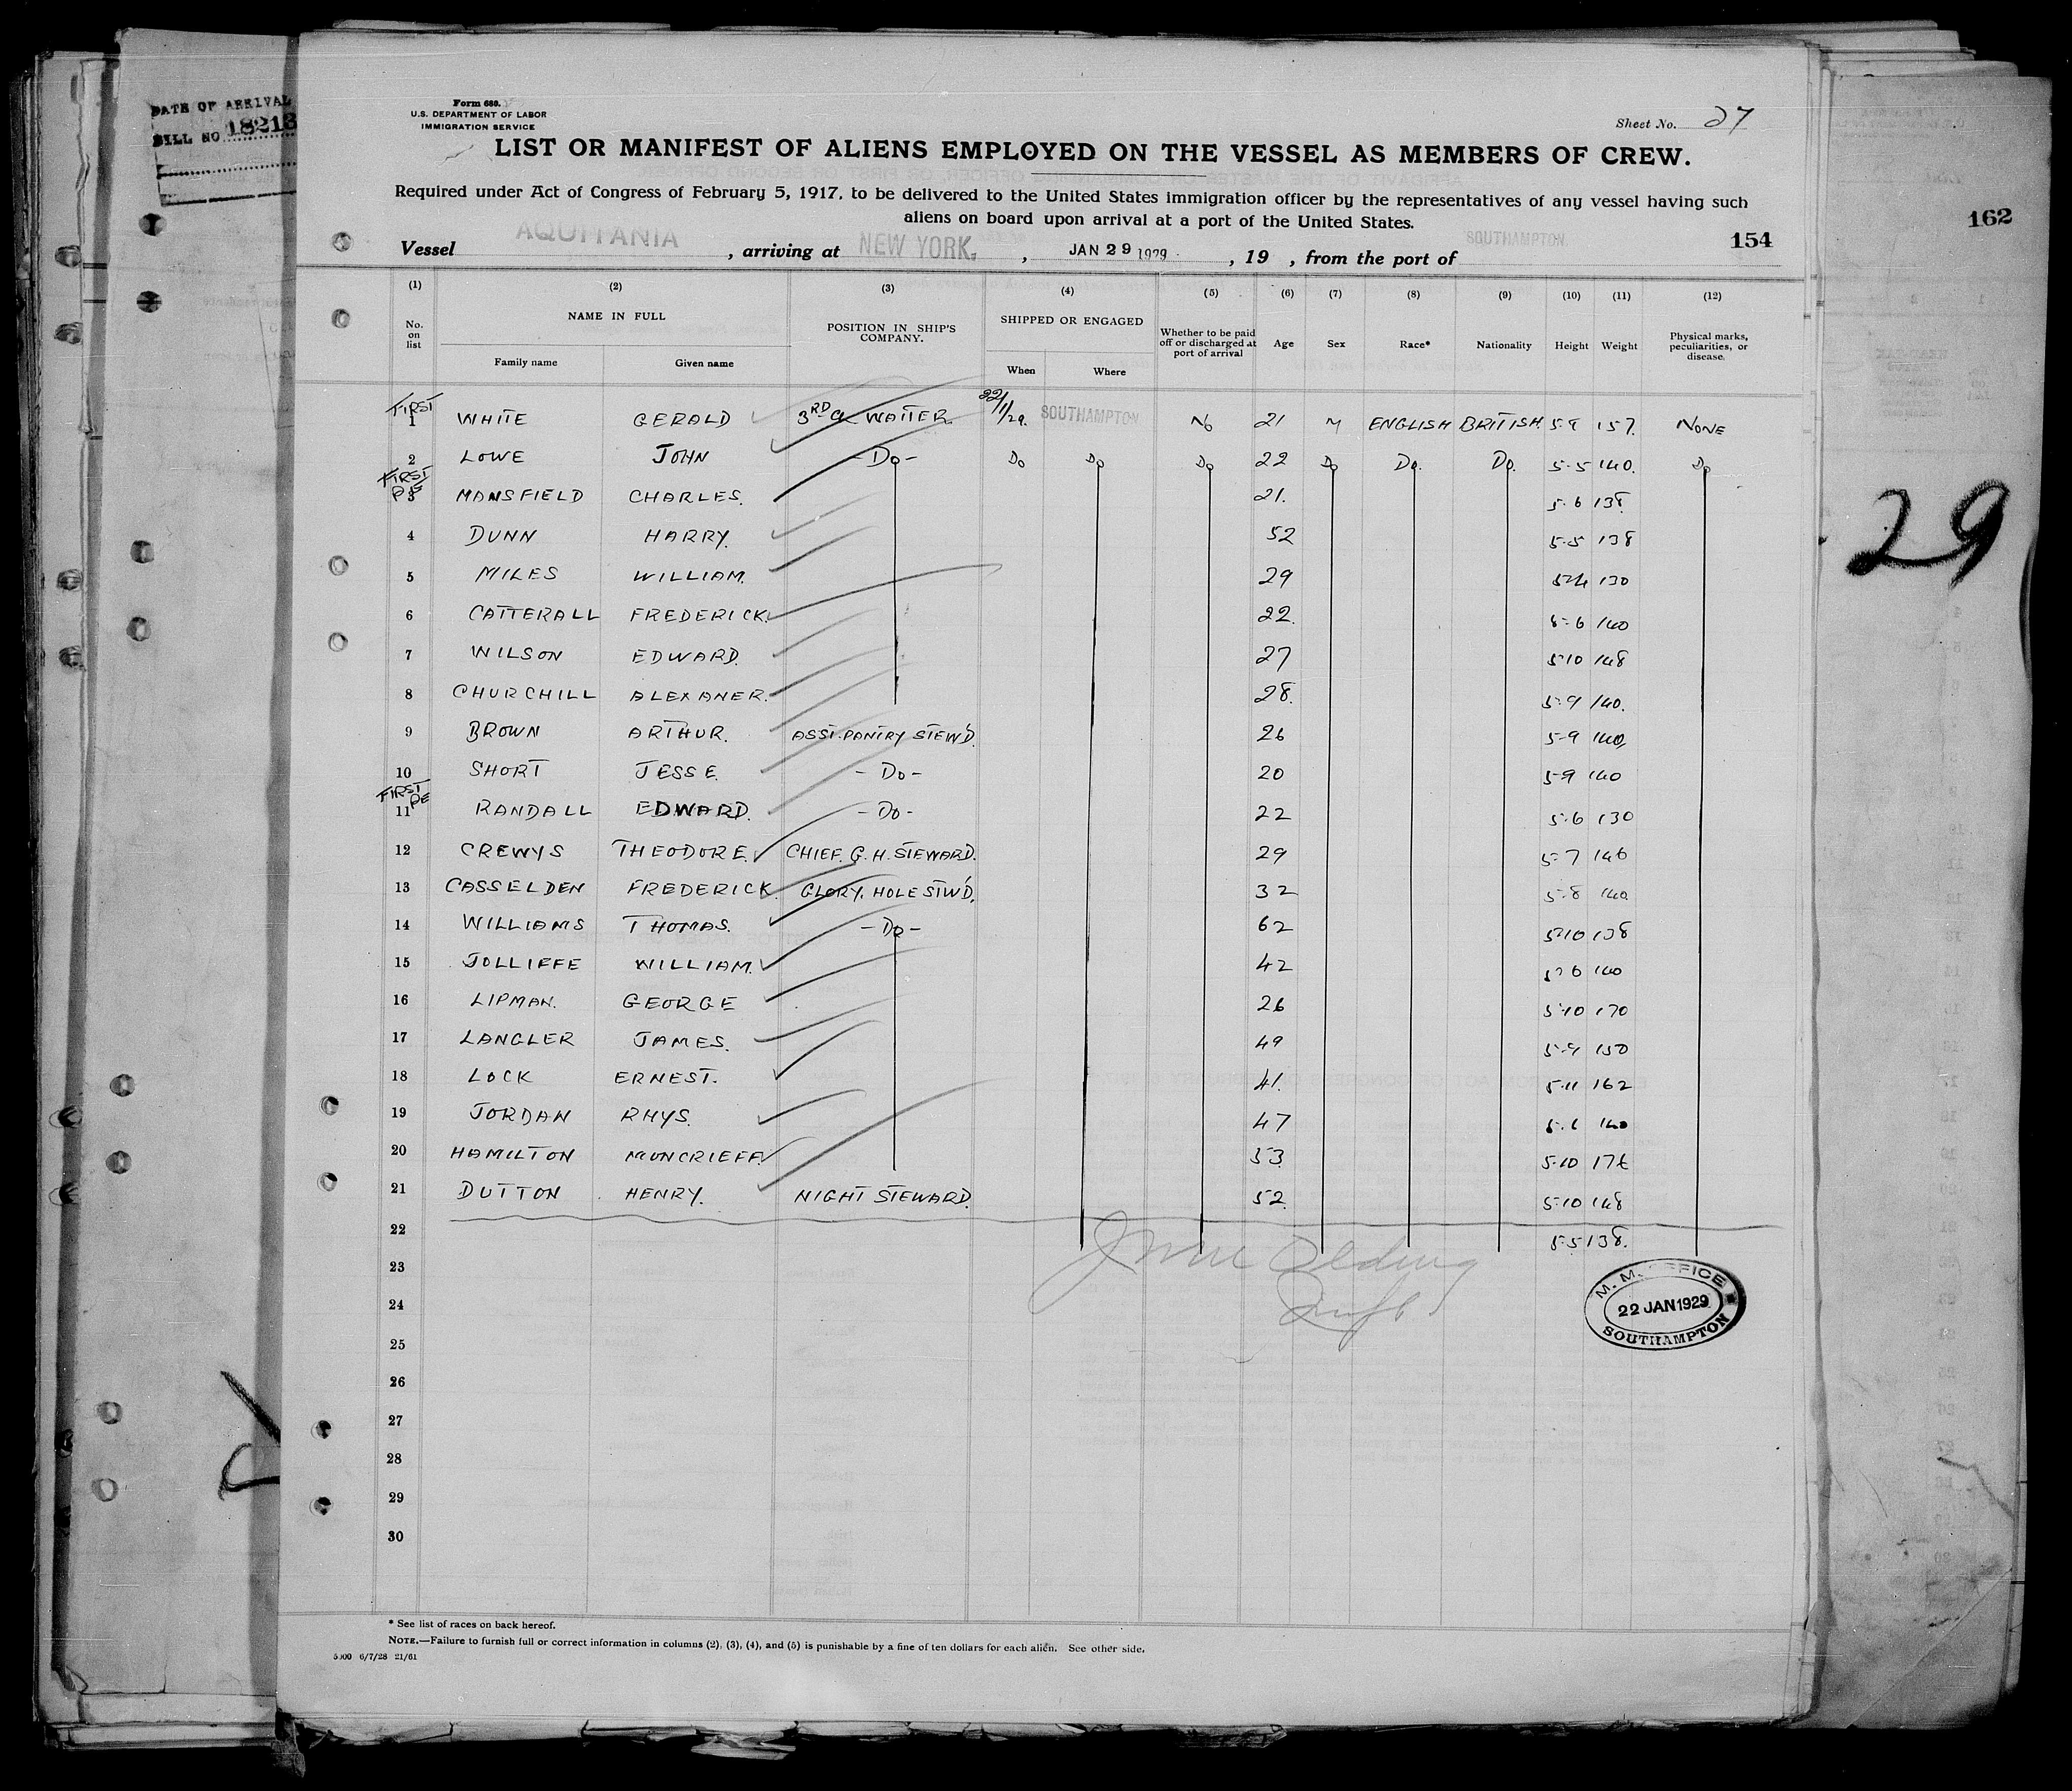 DATE OF ARRIVAL
BILL NO 18213
Form 680.
U.S. DEPARTMENT OF LABOR
IMMIGRATION SERVICE
Sheet No. 27
LIST OR MANIFEST OF ALIENS EMPLOYED ON THE VESSEL AS MEMBERS OF CREW.
Required under Act of Congress of February 5, 1917, to be delivered to the United States immigration officer by the representatives of any vessel having such
aliens on board upon arrival at a port of the United States.
154
162
Vessel AQUITANIA, arriving at NEW YORK, JAN 29 1929, 19 , from the port of SOUTHAMPTON.
(1) (2) (3) (4) (5) (6) (7) (8) (9) (10) (11) (12)
No. on list NAME IN FULL POSITION IN SHIP'S COMPANY. SHIPPED OR ENGAGED Whether to be paid off or discharged at port of arrival Age Sex Race* Nationality Height Weight Physical marks, peculiarities, or disease.
Family name Given name When Where
FIRST
1 WHITE GERALD 3RD CL WAITER 22/1/29. SOUTHAMPTON No 21 M ENGLISH BRITISH 157. NONE
2 LOWE JOHN -Do- Do Do Do 22 Do Do. Do. 5-5 140. Do
FIRST
3 MANSFIELD CHARLES. 21. 5-6 138.
4 DUNN HARRY. 52 5-5 138
29
5 MILES WILLIAM. 29 5-4 130
6 CATTERALL FREDERICK. 22. 5-6 140
7 WILSON EDWARD. 27 5-10 148
8 CHURCHILL ALEXANER. 28. 5-9 140.
9 BROWN ARTHUR. ASST. PANTRY STEW'D. 26 5-9 140,
10 SHORT JESSE. -Do- 20 5-9 140
FIRST PE
11 RANDALL EDWARD. -Do- 22 5-6 130
12 CREWYS THEODORE. CHIEF. G. H. STEWARD. 29 5-7 146
13 CASSELDEN FREDERICK. GLORY. HOLE STW'D. 32 5-8 140
14 WILLIAMS THOMAS. -Do- 62 5-10 138
15 JOLLIFFE WILLIAM. 42 5-6 140
16 LIPMAN. GEORGE 26 5-10 170
17 LANGLER JAMES. 49 5-9 150
18 LOCK ERNEST. 41. 5-11 162
19 JORDAN RHYS. 47 140
20 HAMILTON MUNCRIEFF. 53 5-10
21 DUTTON HENRY. NIGHT STEWARD. 52. 5-10 148
22 5-5 138.
23
24
25
26
27
28
29
30
M. M. OFFICE
22 JAN 1929
SOUTHAMPTON
* See list of races on back hereof.
NOTE.—Failure to furnish full or correct information in columns (2), (3), (4), and (5) is punishable by a fine of ten dollars for each alien. See other side.
5000 6/7/28 21/61